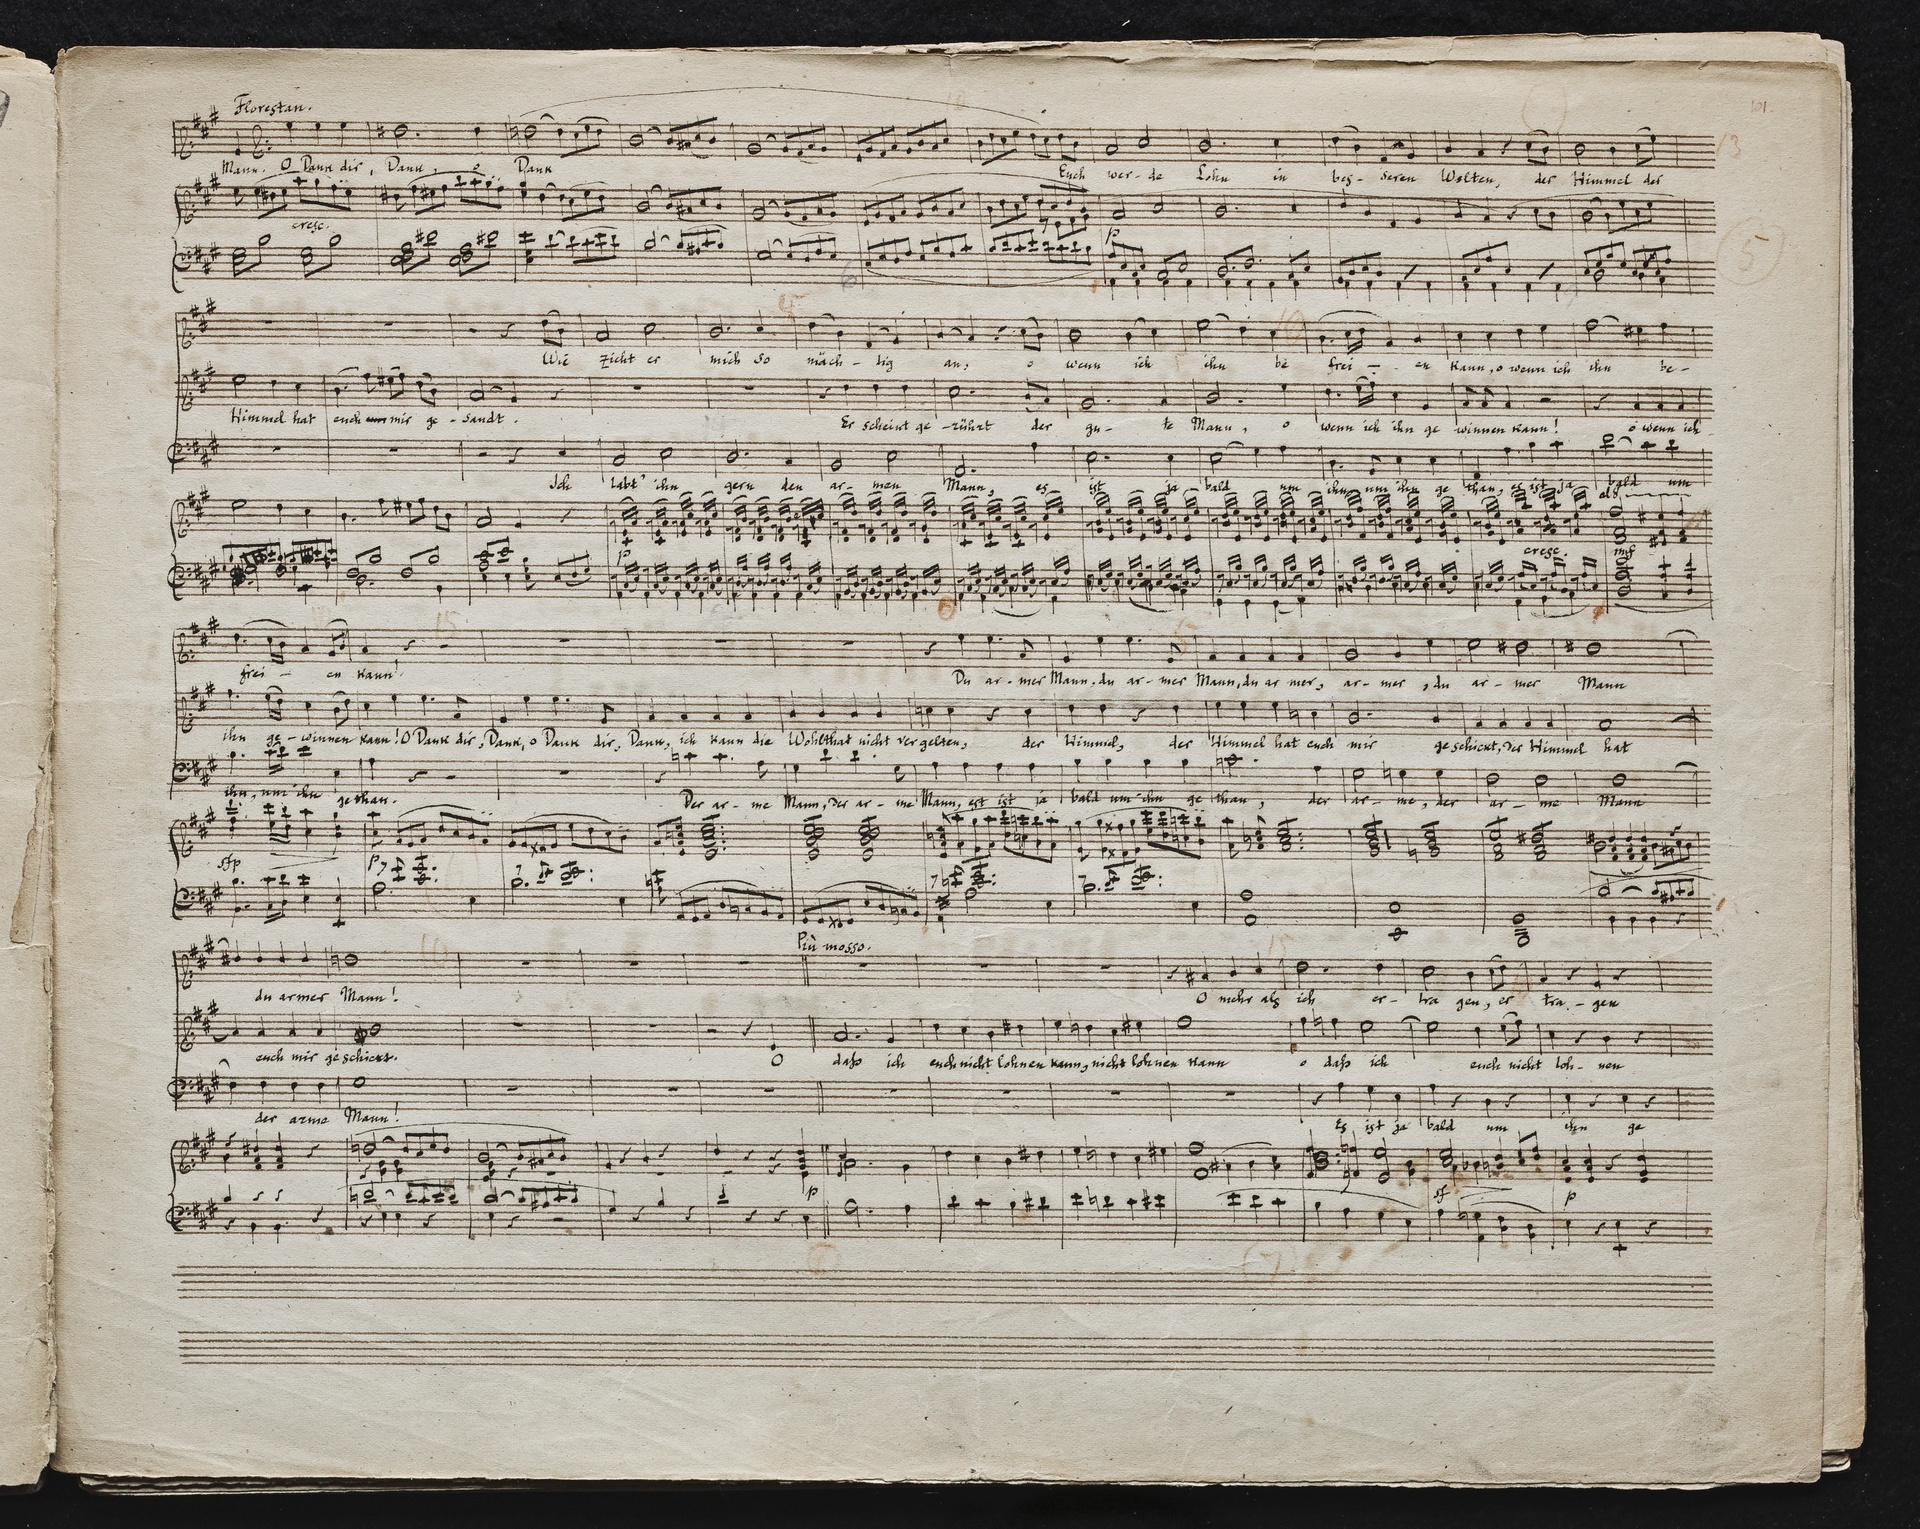 Florestan.
101.
13
Mann. O Dank dir, Dank, o Dank Euch wer-de Lohn in bes-seren Welten, der Himmel der
cresc.
p
5
6
15
Wie zieht er mich so mäch-tig an, o wenn ich ihn be frei - - en kann, o wenn ich ihn be-
Himmel hat euch mir ge-sandt. Er scheint ge-rührt der gu- te Mann, o wenn ich ihn ge winnen kann! o wenn ich
Ich labt' ihn gern den ar-men Mann, es ist ja bald um ihn, um ihn ge than, es ist ja bald um
p cresc. mf
15
frei - en kann! Du ar-mer Mann, du ar-mer Mann, du ar mer, ar-mer, du ar-mer Mann
ihn ge-winnen kann! O Dank dir, Dank, o Dank dir, Dank, ich kann die Wohlthat nicht vergelten, der Himmel, der Himmel hat euch mir geschickt, der Himmel hat
ihn, um ihn gethan. Der ar-me Mann, der ar-me Mann, est ist ja bald um ihn ge than, der ar-me, der ar-me Mann
sfp p
Più mosso.
10
15
du armer Mann! O mehr als ich er-tra gen, er tra-gen
euch mir geschickt. O daß ich euch nicht lohnen kann, nicht lohnen kann o daß ich euch nicht loh-nen
der arme Mann! Es ist ja bald um ihn ge
p sf p
(7)